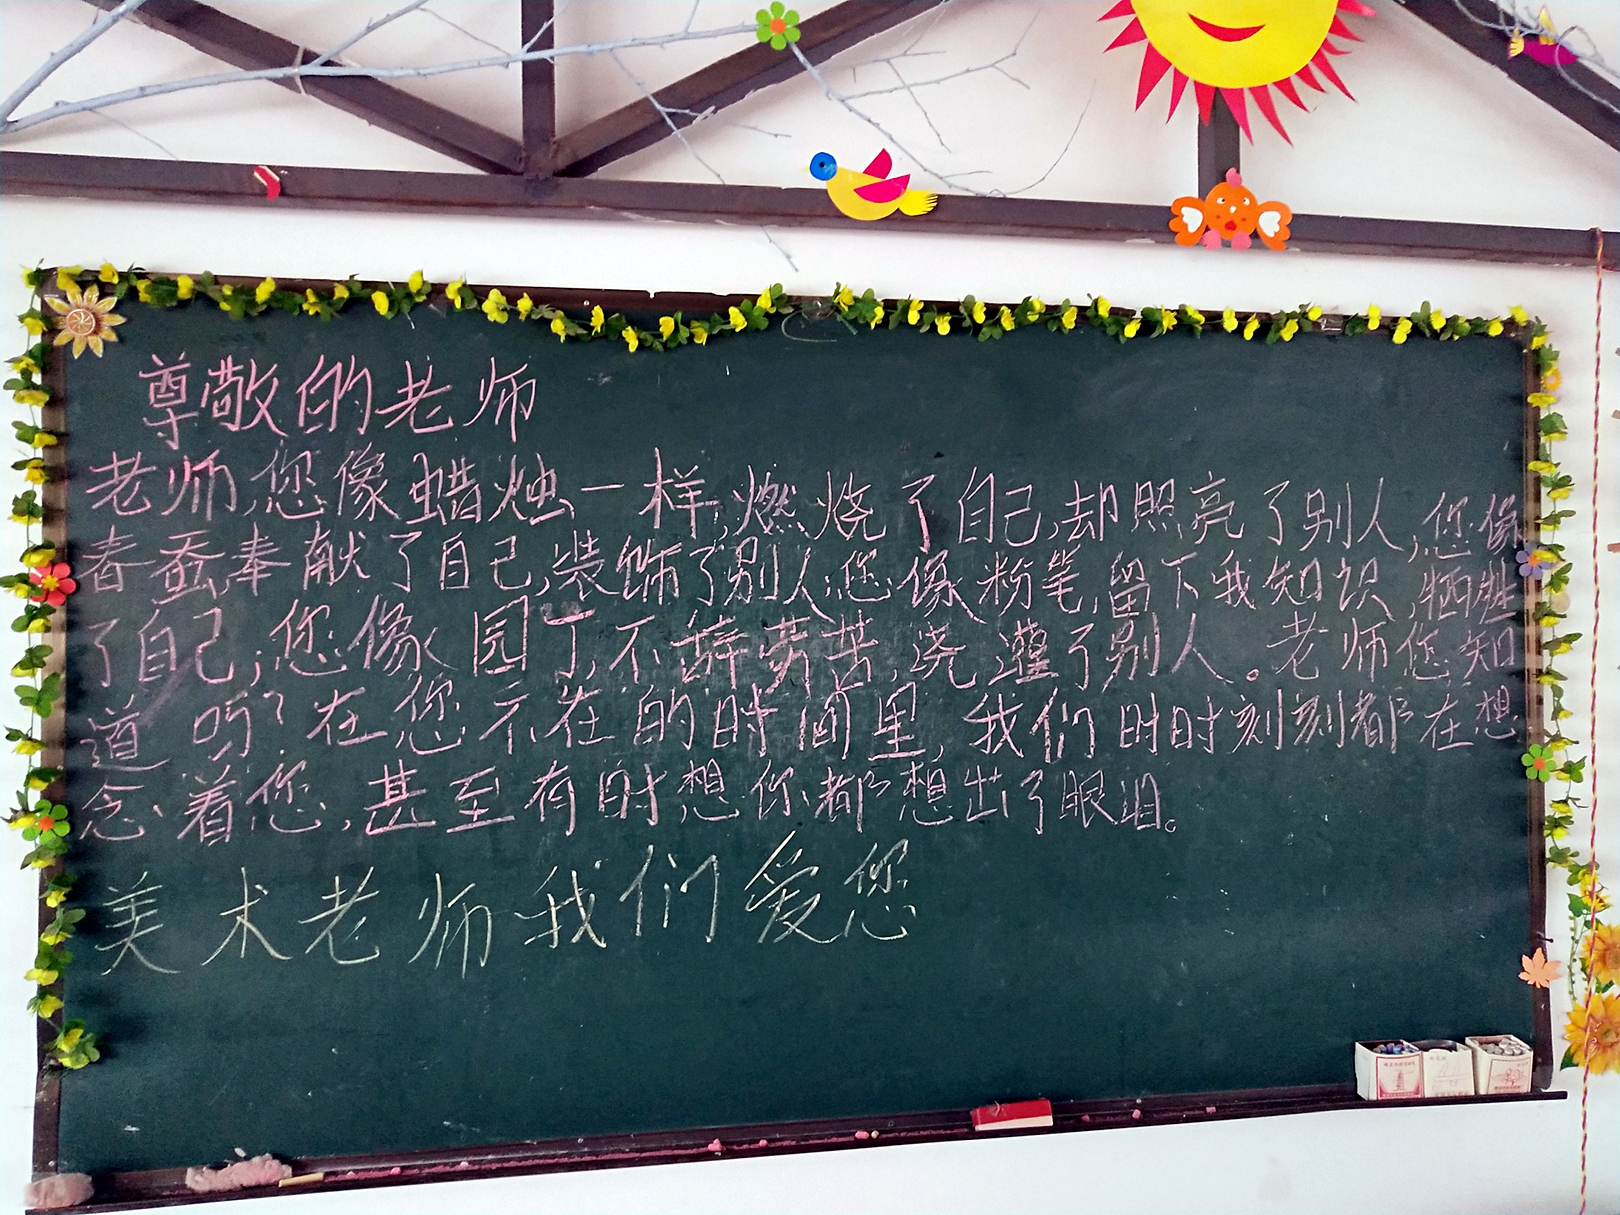 尊敬的老师
老师,您像蜡烛一样,燃烧了自己,却照亮了别人,您像
春蚕,奉献了自己,装饰了别人,您像粉笔,留下我知识,牺牲
了自己,您像园丁,不辞劳苦,浇灌了别人。老师您知
道吗?在您不在的时间里,我们时时刻刻都在想
念着您,甚至有时想你都想出了眼泪。
美术老师我们爱您